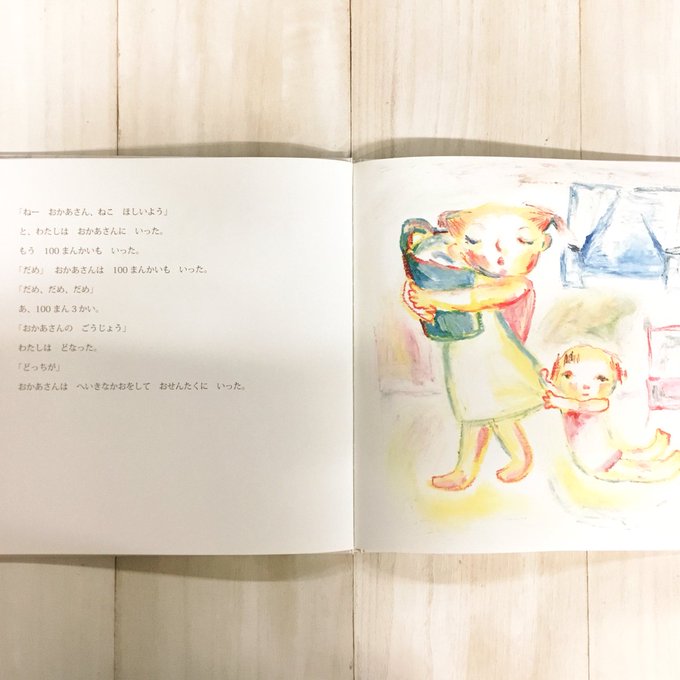 「ねー　おかあさん、ねこ　ほしいよう」
と、わたしは　おかあさんに　いった。
もう　100まんかいも　いった。
「だめ」　おかあさんは　100まんかいも　いった。
「だめ、だめ、だめ」
あ、100まん3かい。
「おかあさんの　ごうじょう」
わたしは　どなった。
「どっちが」
おかあさんは　へいきなかおをして　おせんたくに　いった。